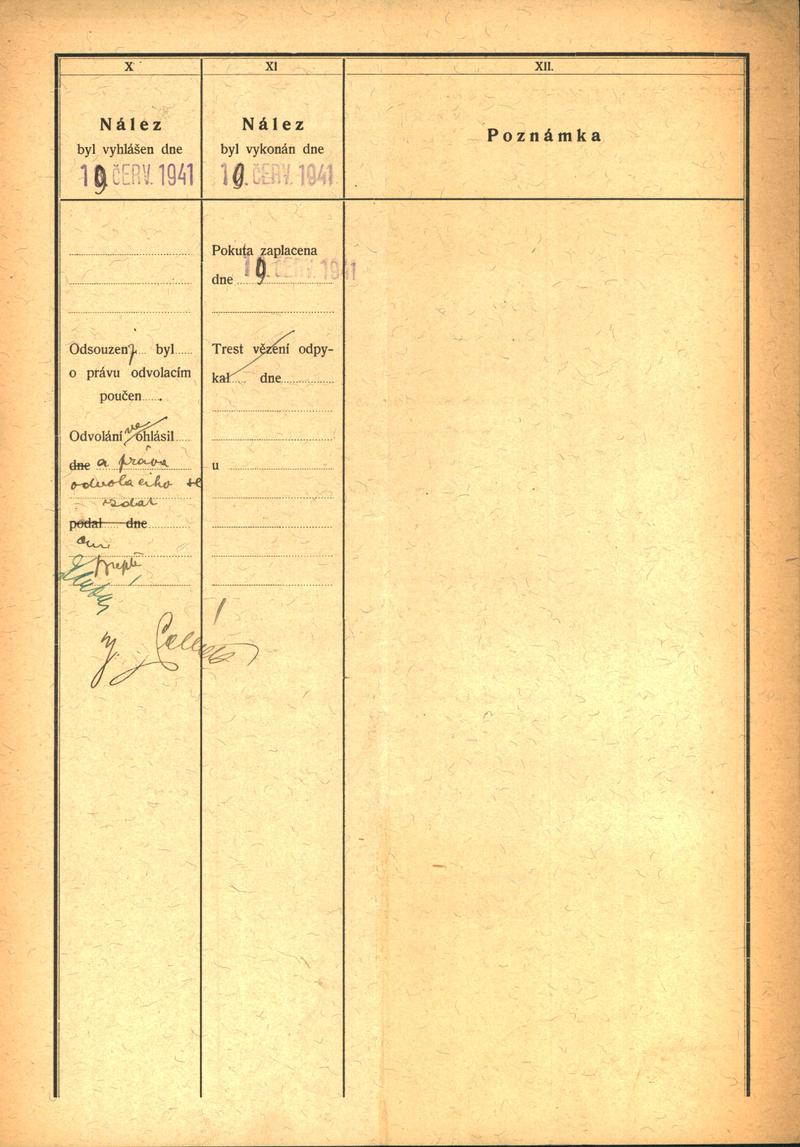 X
Nález
byl vyhlášen dne
19. ČERV. 1941
Odsouzený byl
o právu odvolacím
poučen
Odvolání neohlásil
dne a práva
odvolacího se
vzdal
podal dne
XI
Nález
byl vykonán dne
19. ČERV. 1941
Pokuta zaplacena
dne 19. ČERV. 1941
Trest vězení odpy-
kal dne
u
XII.
Poznámka